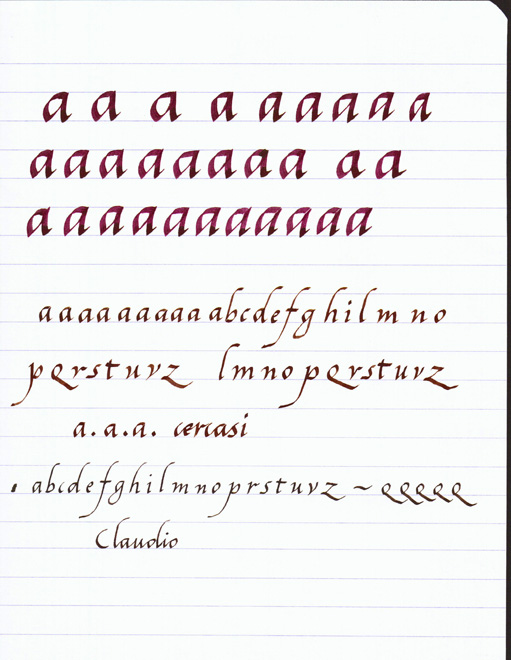 a a a a aaaaa
aaaaaaaa aa
aaaaaaaaaaa
aaaaaaaaa abcdefghilmno
pqrstuvz lmnopqrstuvz
a.a.a. cercasi
. abcdefghilmnoprstuvz ~ qqqqq
Claudio